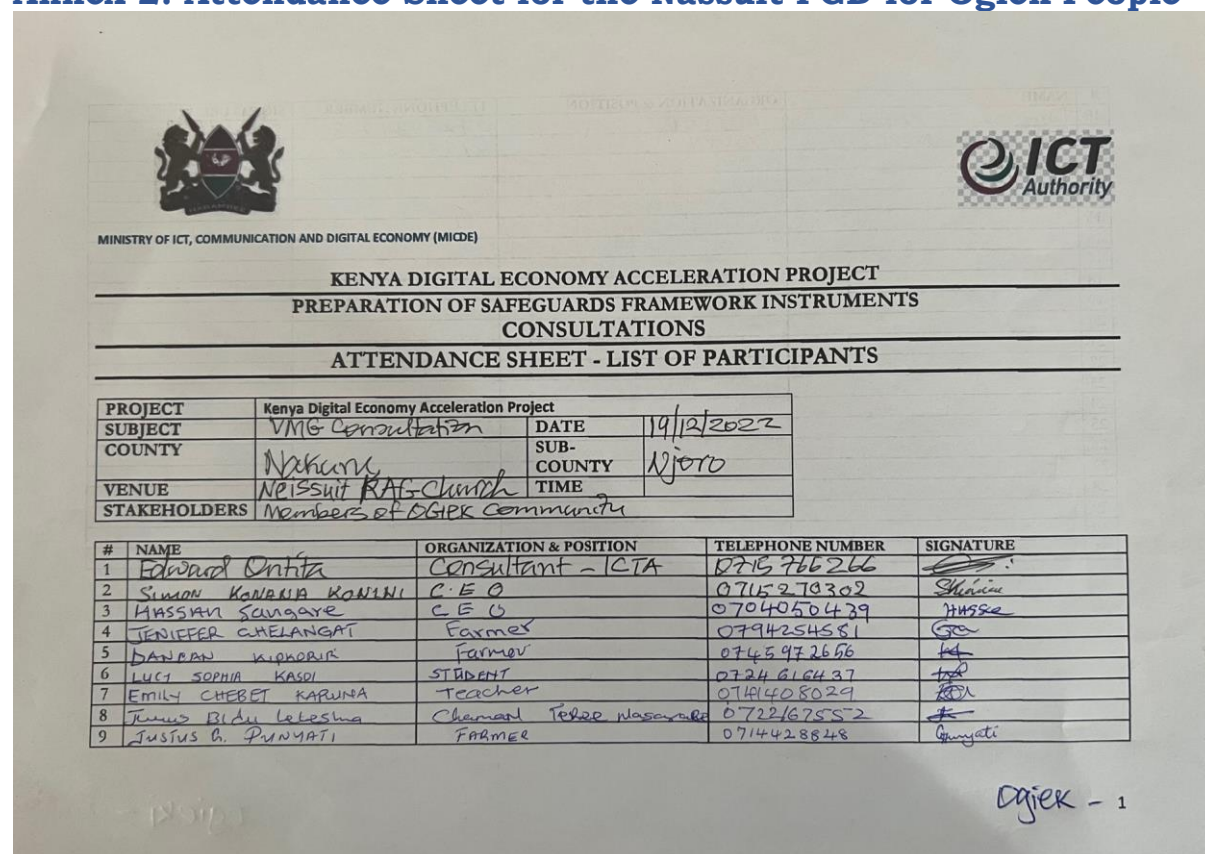 Annex 2: Attendance Sheet for the Nassuit FGD for Ogiek People
HARAMBEE
ICT
Authority
MINISTRY OF ICT, COMMUNICATION AND DIGITAL ECONOMY (MICDE)
KENYA DIGITAL ECONOMY ACCELERATION PROJECT
PREPARATION OF SAFEGUARDS FRAMEWORK INSTRUMENTS
CONSULTATIONS
ATTENDANCE SHEET - LIST OF PARTICIPANTS
PROJECT Kenya Digital Economy Acceleration Project
SUBJECT VMG Consultation DATE 19/12/2022
COUNTY Nakuru SUB-COUNTY Njoro
VENUE Neissuit RAG Church TIME
STAKEHOLDERS Members of OGIEK Community
# NAME ORGANIZATION & POSITION TELEPHONE NUMBER SIGNATURE
1 Edward Ontita Consultant - ICTA 0715 766266
2 SIMON KONANA KONINI C.E.O 0715270302
3 HASSAN Sangare C E O 0704050439
4 JENIFFER CHELANGAT Farmer 0794254581
5 KIPKORIR Farmer 0745972656
6 LUCY SOPHIA KASOI STUDENT 0724616437
7 EMILY CHEBET KARUNA Teacher 0741408029
8 Bidu Lekesha 0722167552
9 JUSTUS G. PUNYATI FARMER 0714428848
Ogiek - 1